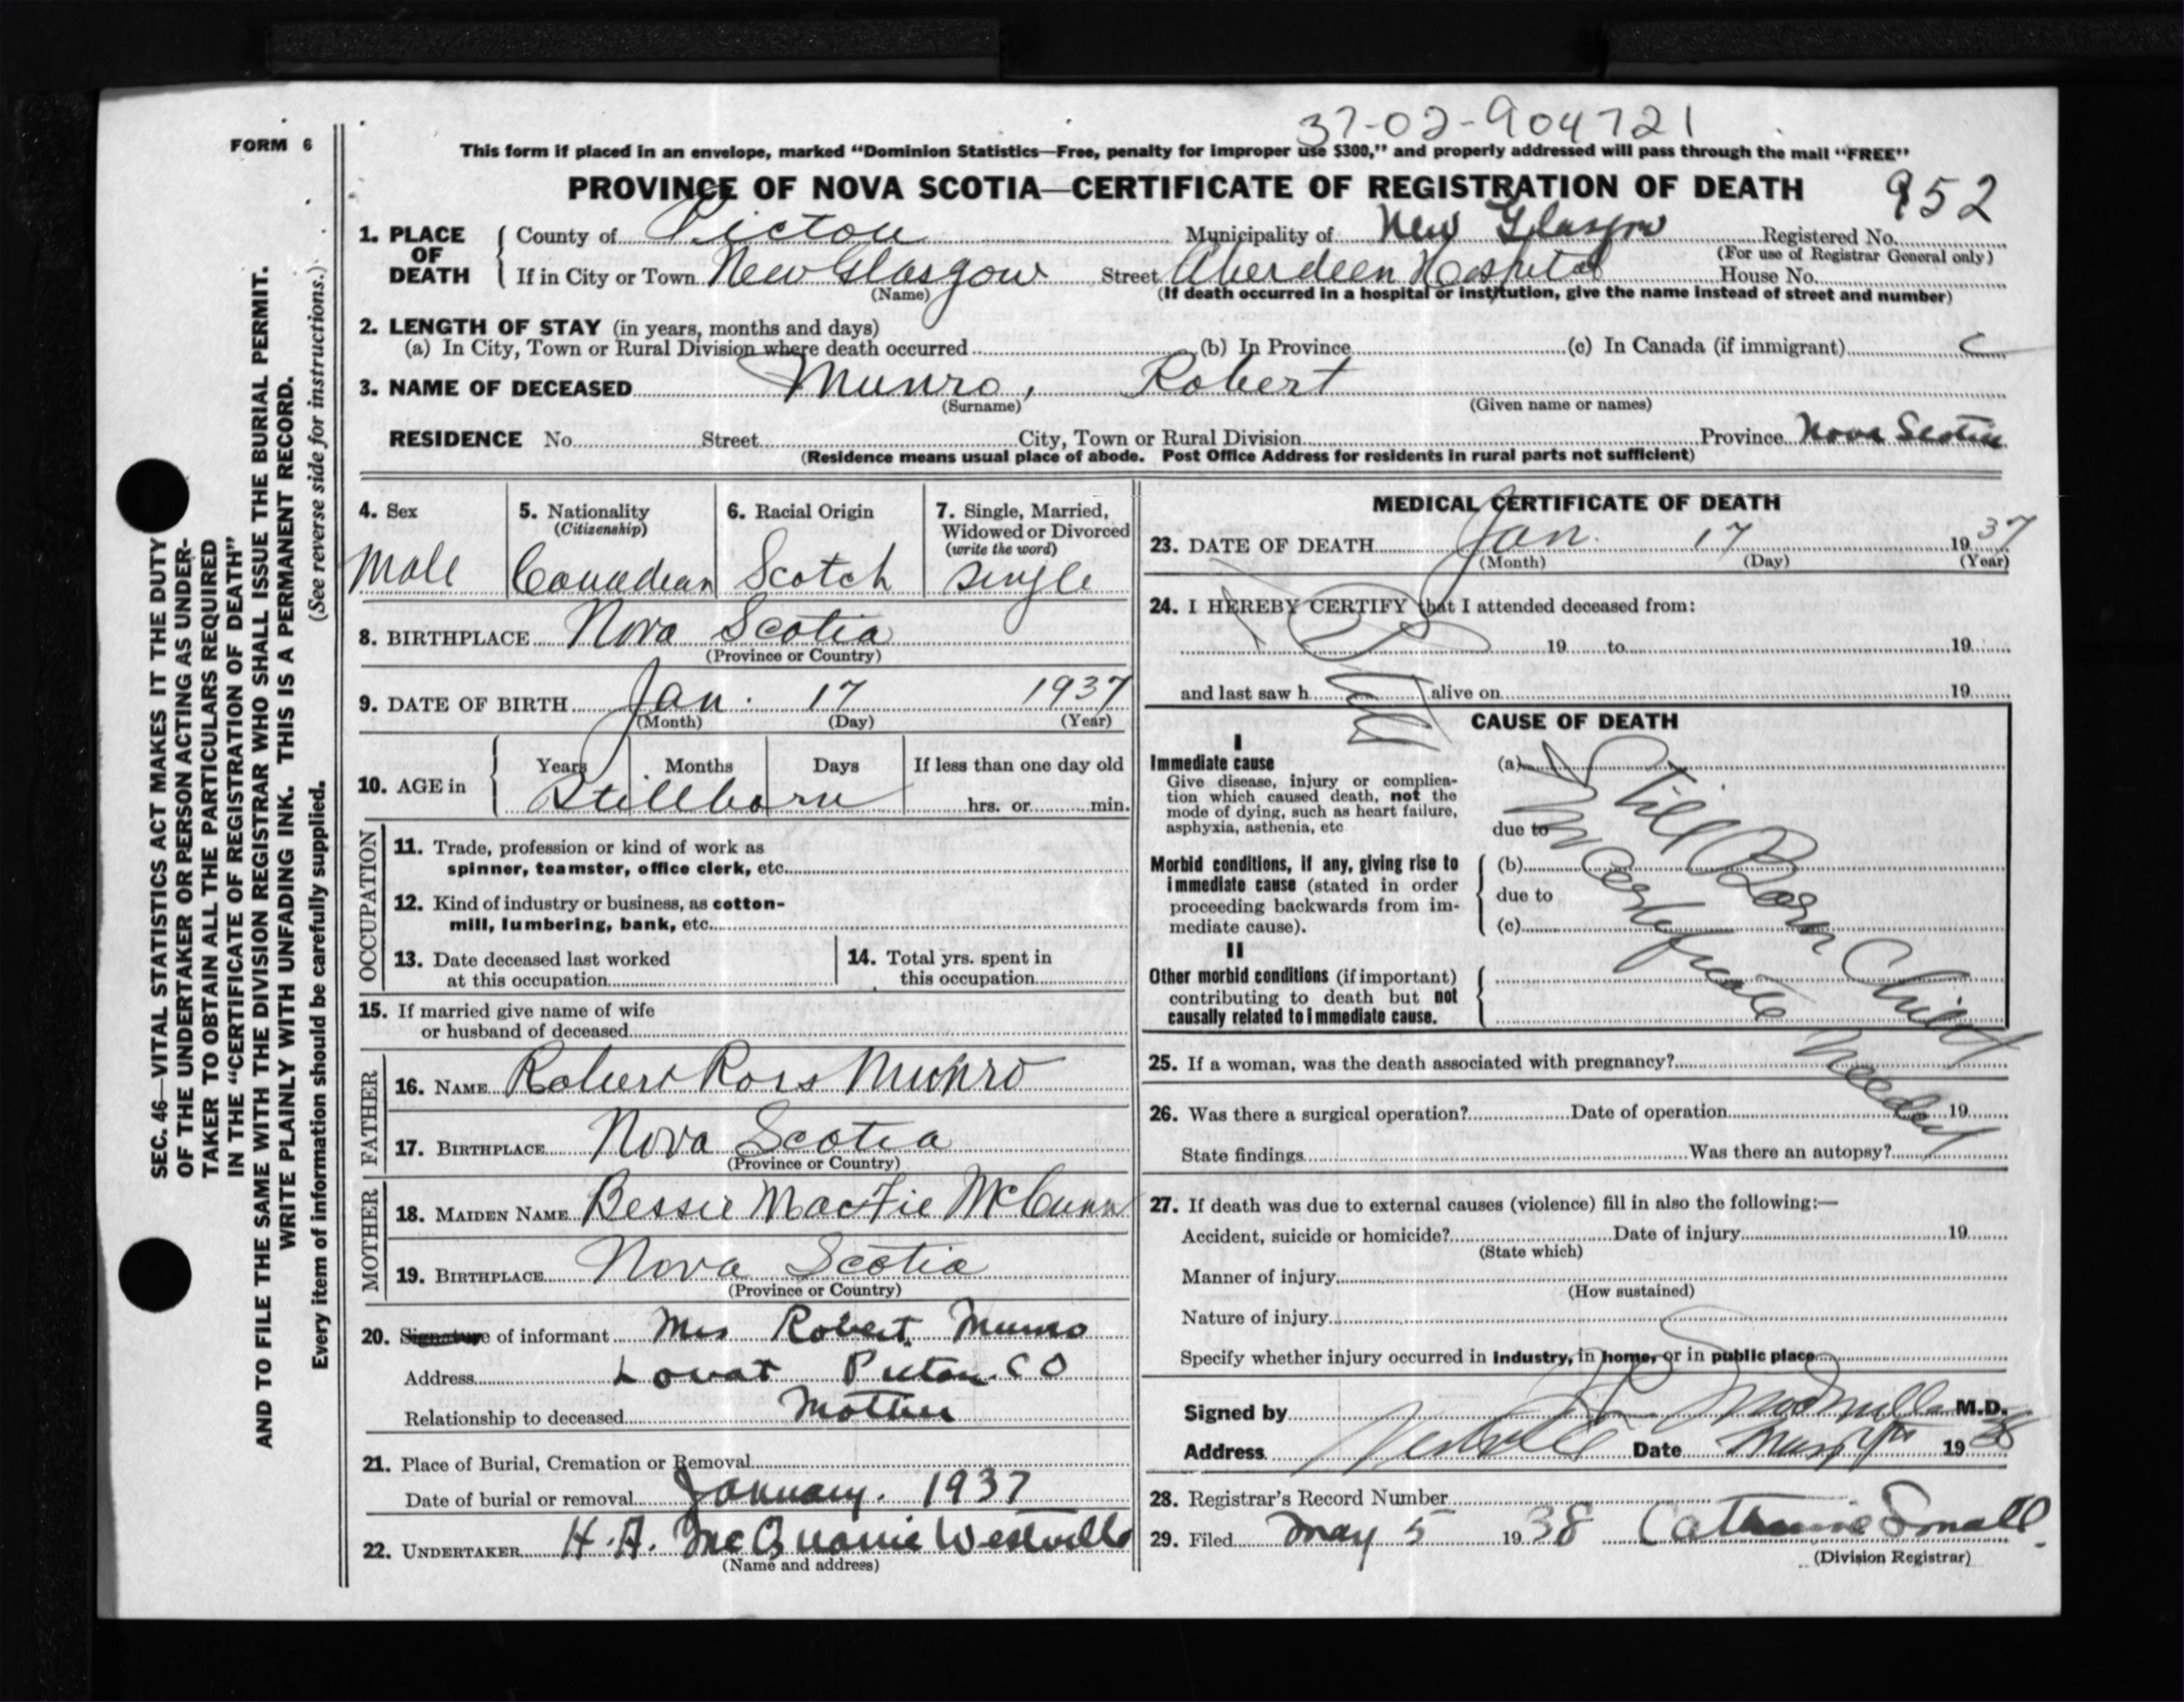 37-02-904721
FORM 6
This form if placed in an envelope, marked “Dominion Statistics—Free, penalty for improper use $300,” and properly addressed will pass through the mail “FREE”
PROVINCE OF NOVA SCOTIA—CERTIFICATE OF REGISTRATION OF DEATH
952
1. PLACE OF DEATH { County of Pictou Municipality of New Glasgow Registered No.
(For use of Registrar General only)
If in City or Town New Glasgow Street Aberdeen Hospital House No.
(Name) (If death occurred in a hospital or institution, give the name instead of street and number)
2. LENGTH OF STAY (in years, months and days)
(a) In City, Town or Rural Division where death occurred (b) In Province (c) In Canada (if immigrant)
3. NAME OF DECEASED Munro, Robert
(Surname) (Given name or names)
RESIDENCE No. Street City, Town or Rural Division Province Nova Scotia
(Residence means usual place of abode. Post Office Address for residents in rural parts not sufficient)
SEC. 46—VITAL STATISTICS ACT MAKES IT THE DUTY
OF THE UNDERTAKER OR PERSON ACTING AS UNDER-
TAKER TO OBTAIN ALL THE PARTICULARS REQUIRED
IN THE “CERTIFICATE OF REGISTRATION OF DEATH”
AND TO FILE THE SAME WITH THE DIVISION REGISTRAR WHO SHALL ISSUE THE BURIAL PERMIT.
WRITE PLAINLY WITH UNFADING INK. THIS IS A PERMANENT RECORD.
Every item of information should be carefully supplied. (See reverse side for instructions.)
4. Sex
Male
5. Nationality
(Citizenship)
Canadian
6. Racial Origin
Scotch
7. Single, Married,
Widowed or Divorced
(write the word)
Single
8. BIRTHPLACE Nova Scotia
(Province or Country)
9. DATE OF BIRTH Jan. 17 1937
(Month) (Day) (Year)
10. AGE in { Years Months Days If less than one day old
Stillborn hrs. or min.
OCCUPATION
11. Trade, profession or kind of work as
spinner, teamster, office clerk, etc.
12. Kind of industry or business, as cotton-
mill, lumbering, bank, etc.
13. Date deceased last worked
at this occupation
14. Total yrs. spent in
this occupation
15. If married give name of wife
or husband of deceased
FATHER
16. NAME Robert Ross Munro
17. BIRTHPLACE Nova Scotia
(Province or Country)
MOTHER
18. MAIDEN NAME Bessie MacFie McCunn
19. BIRTHPLACE Nova Scotia
(Province or Country)
20. Signature of informant Mrs Robert Munro
Address Lovat Pictou Co
Relationship to deceased Mother
21. Place of Burial, Cremation or Removal
Date of burial or removal January. 1937
22. UNDERTAKER H. A. McQuarrie Westville
(Name and address)
MEDICAL CERTIFICATE OF DEATH
23. DATE OF DEATH Jan. 17 1937
(Month) (Day) (Year)
24. I HEREBY CERTIFY that I attended deceased from:
19 to 19
and last saw h alive on 19
CAUSE OF DEATH
I
Immediate cause
Give disease, injury or complica-
tion which caused death, not the
mode of dying, such as heart failure,
asphyxia, asthenia, etc
(a)
due to
Morbid conditions, if any, giving rise to
immediate cause (stated in order
proceeding backwards from im-
mediate cause).
(b)
due to
(c)
II
Other morbid conditions (if important)
contributing to death but not
causally related to immediate cause.
Still Born Child
No Certificate Needed
25. If a woman, was the death associated with pregnancy?
26. Was there a surgical operation? Date of operation 19
State findings Was there an autopsy?
27. If death was due to external causes (violence) fill in also the following:—
Accident, suicide or homicide? Date of injury 19
(State which)
Manner of injury
(How sustained)
Nature of injury
Specify whether injury occurred in industry, in home, or in public place
Signed by M.D.
Address Westville Date 1938
28. Registrar's Record Number
29. Filed May 5 1938 Catherine Small
(Division Registrar)